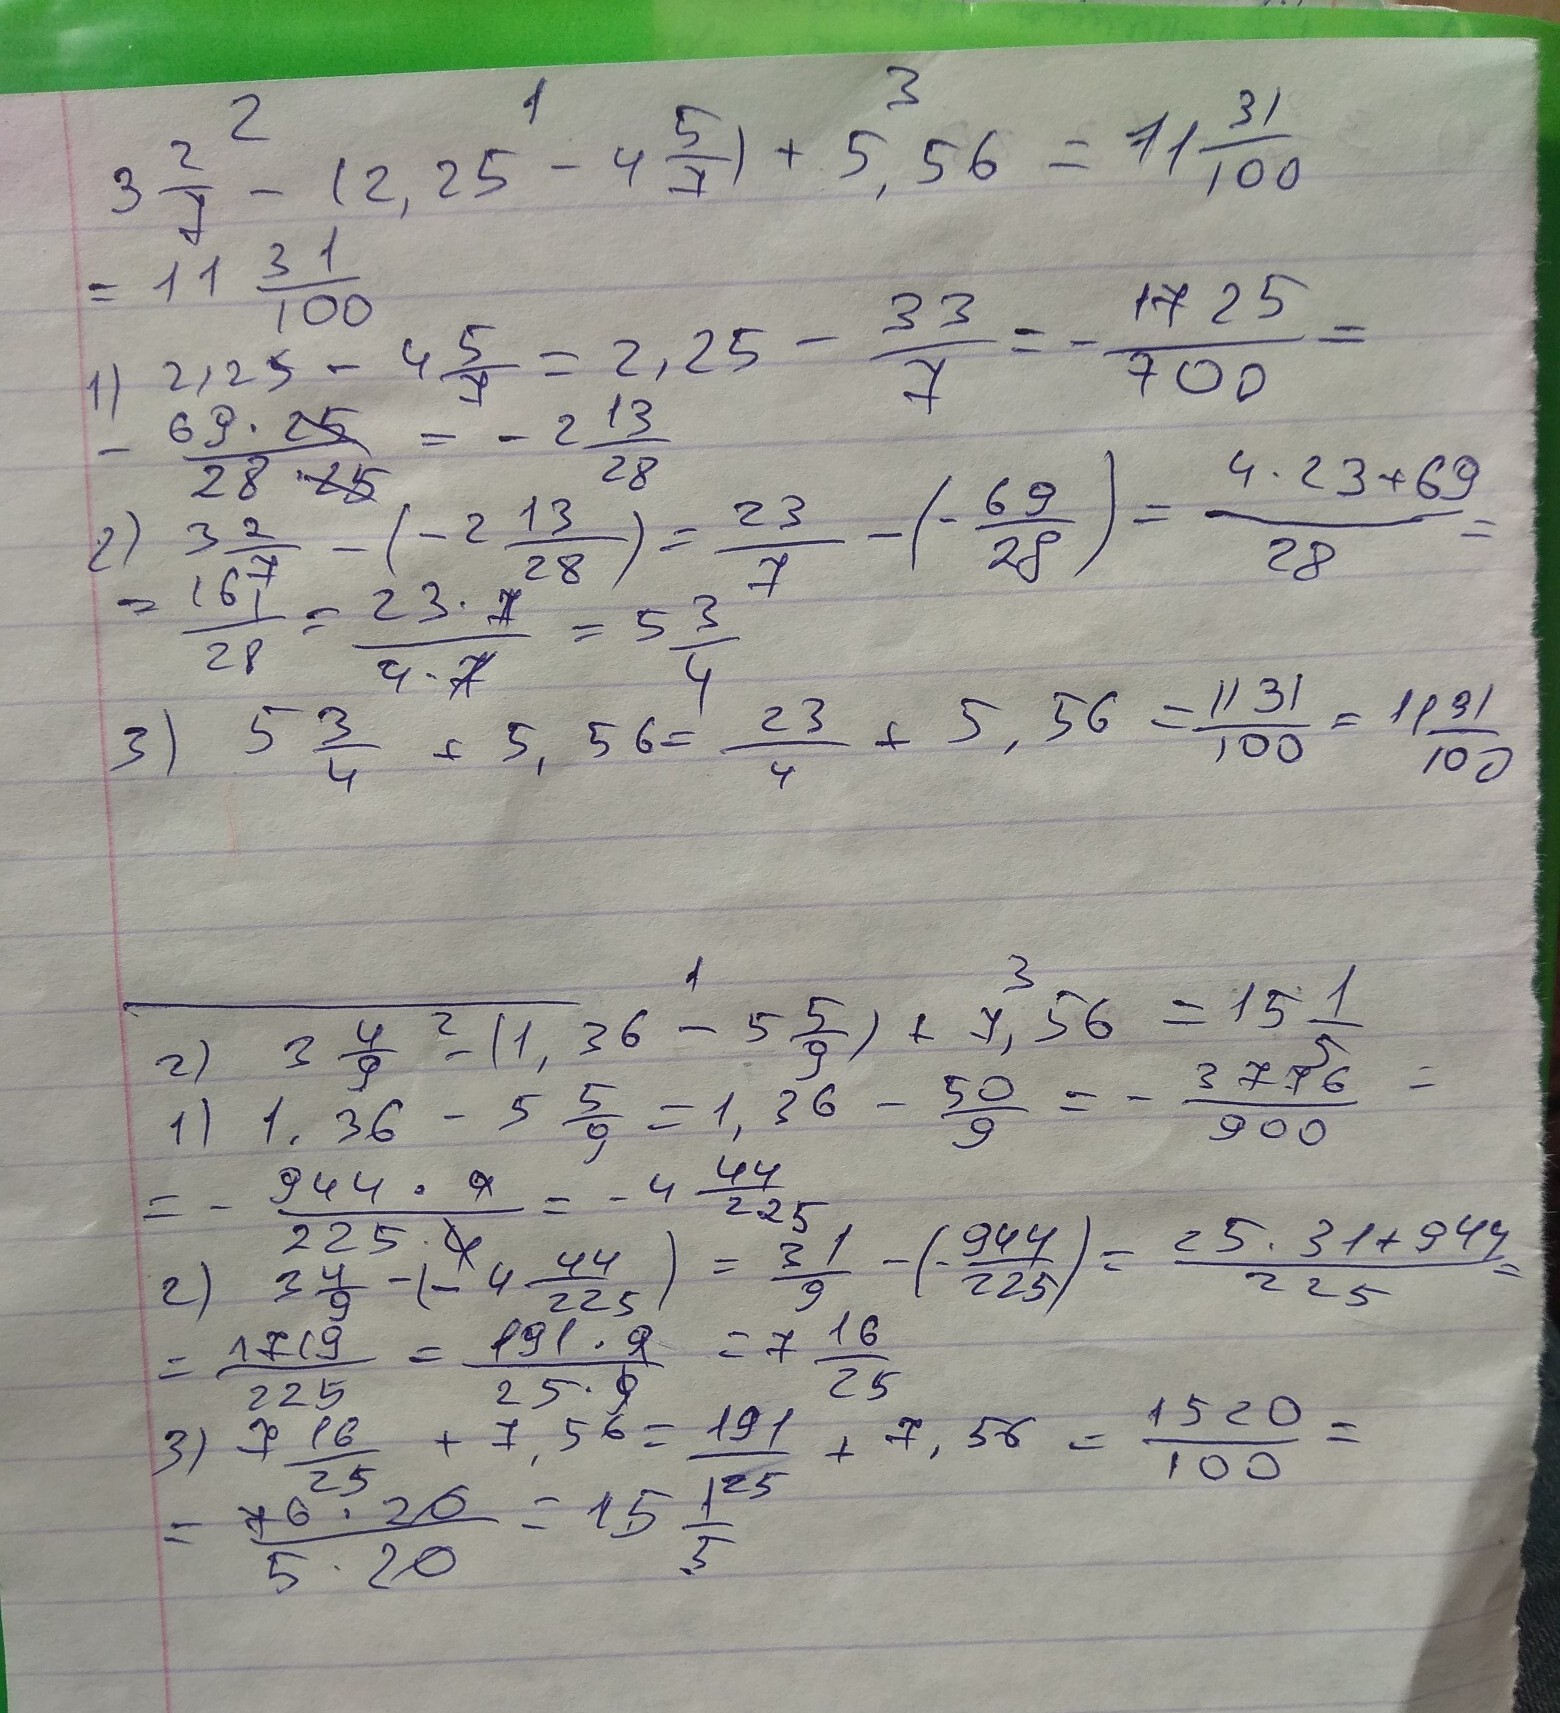 2 1 3
3 2/7 - (2,25 - 4 5/7) + 5,56 = 11 31/100
= 11 31/100
1) 2,25 - 4 5/7 = 2,25 - 33/7 = - 1725/700 =
- 69·25/28·25 = - 2 13/28
2) 3 2/7 - (-2 13/28) = 23/7 - (- 69/28) = 4·23+69/28 =
= 161/28 = 23·7/4·7 = 5 3/4
3) 5 3/4 + 5,56 = 23/4 + 5,56 = 1131/100 = 11 31/100
1 3
2) 3 4/9 2 - (1,36 - 5 5/9) + 7,56 = 15 1/5
1) 1.36 - 5 5/9 = 1,36 - 50/9 = - 3776/900 =
= - 944·4/225·4 = - 4 44/225
2) 3 4/9 - (- 4 44/225) = 31/9 - (- 944/225) = 25·31+944/225 =
= 1719/225 = 191·9/25·9 = 7 16/25
3) 7 16/25 + 7,56 = 191/25 + 7,56 = 1520/100 =
= 76·20/5·20 = 15 1/5